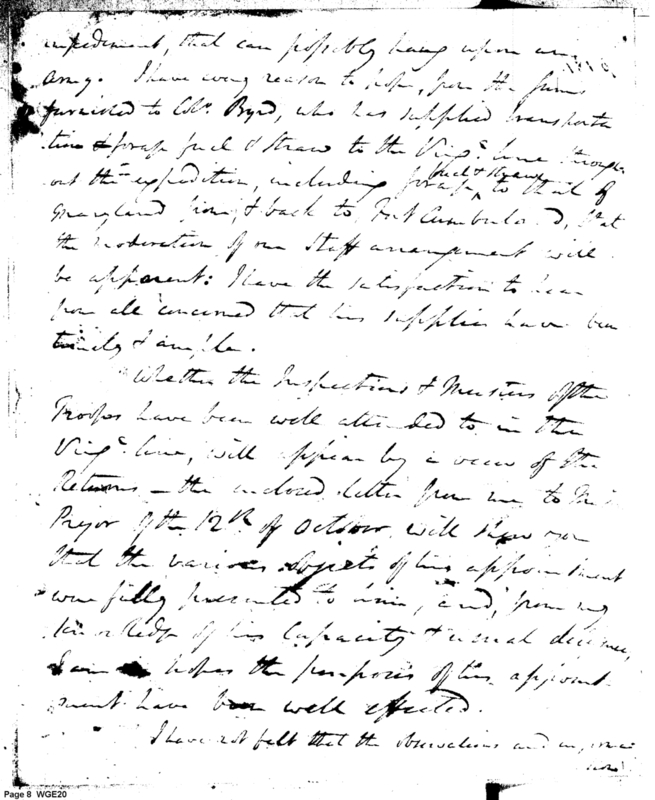 impediment, that can possibly hang upon an
army. I have every reason to hope, from the
furnished to Colo. Byrd, who has supplied transporta
tion & forage fuel & straw to the Virga. line through
fuel & straw
out the expedition, including forage, to that of
Maryland from, & back to Fort Cumberland, that
the moderation of our staff arrangement will
be apparent: I have the satisfaction to hear
from all concerned that his supplies have been
timely & ample.
Whether the Inspections & Musters of the
Troops have been well attended to in the
Virga. line, will appear by a view of the
Returns — the enclosed letter from me to
Pryor of the 12th of October will shew you
that the various objects of his appointment
were fully presented to him, and, from my
knowledge of his Capacity & usual
I am in hopes the purposes of his appoint
ment have been well effected.
I have not felt that the observations and
Page 8 WGE20